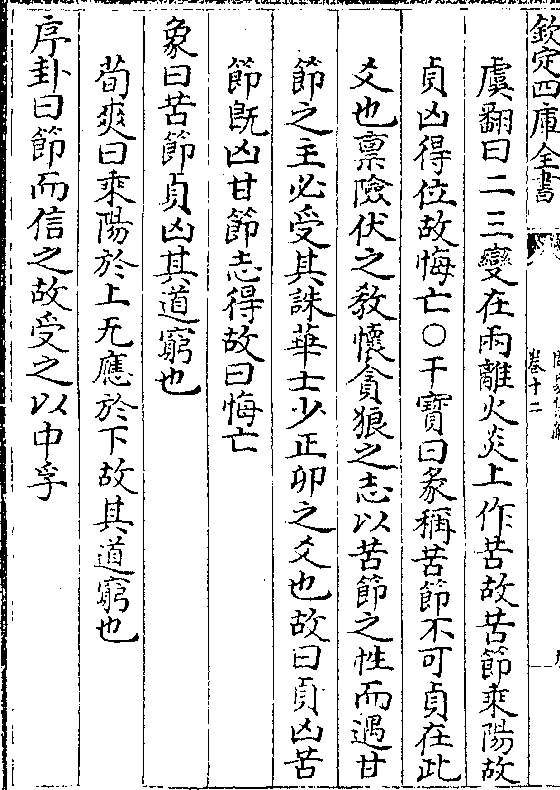 欽定四庫全書
卷十二
虞翻曰二三變在兩離火炎上作苦故苦節乘陽故
貞凶得位故悔亡○干寶曰彖稱苦節不可貞在此
爻也禀險伏之敎懷貪狼之志以苦節之性而遇甘
節之主必受其誅華士少正卯之爻也故曰貞凶苦
節既凶甘節志得故曰悔亡
象曰苦節貞凶其道窮也
荀爽曰乘陽於上无應於下故其道窮也
序卦曰節而信之故受之以中孚